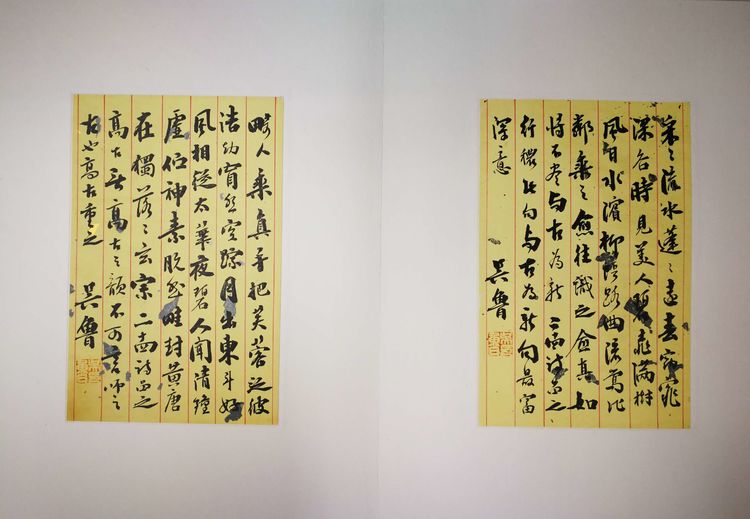 采〻流水蓬〻遠春窈窕
深谷時見美人碧桃滿樹
風日水濱柳陰路曲流鶯比
鄰乘之愈往識之愈真如
將不盡與古為新 詩品之
纖穠此句與古為新句最富
深意
吳魯
畸人乘真手把芙蓉泛彼
浩劫窅然空蹤月出東斗好
風相從太華夜碧人聞清鐘
虛佇神素脫然畦封黃唐
在獨落〻玄宗二 詩品之
高古 高古之韻不可言師之
古也高古重之
吳魯